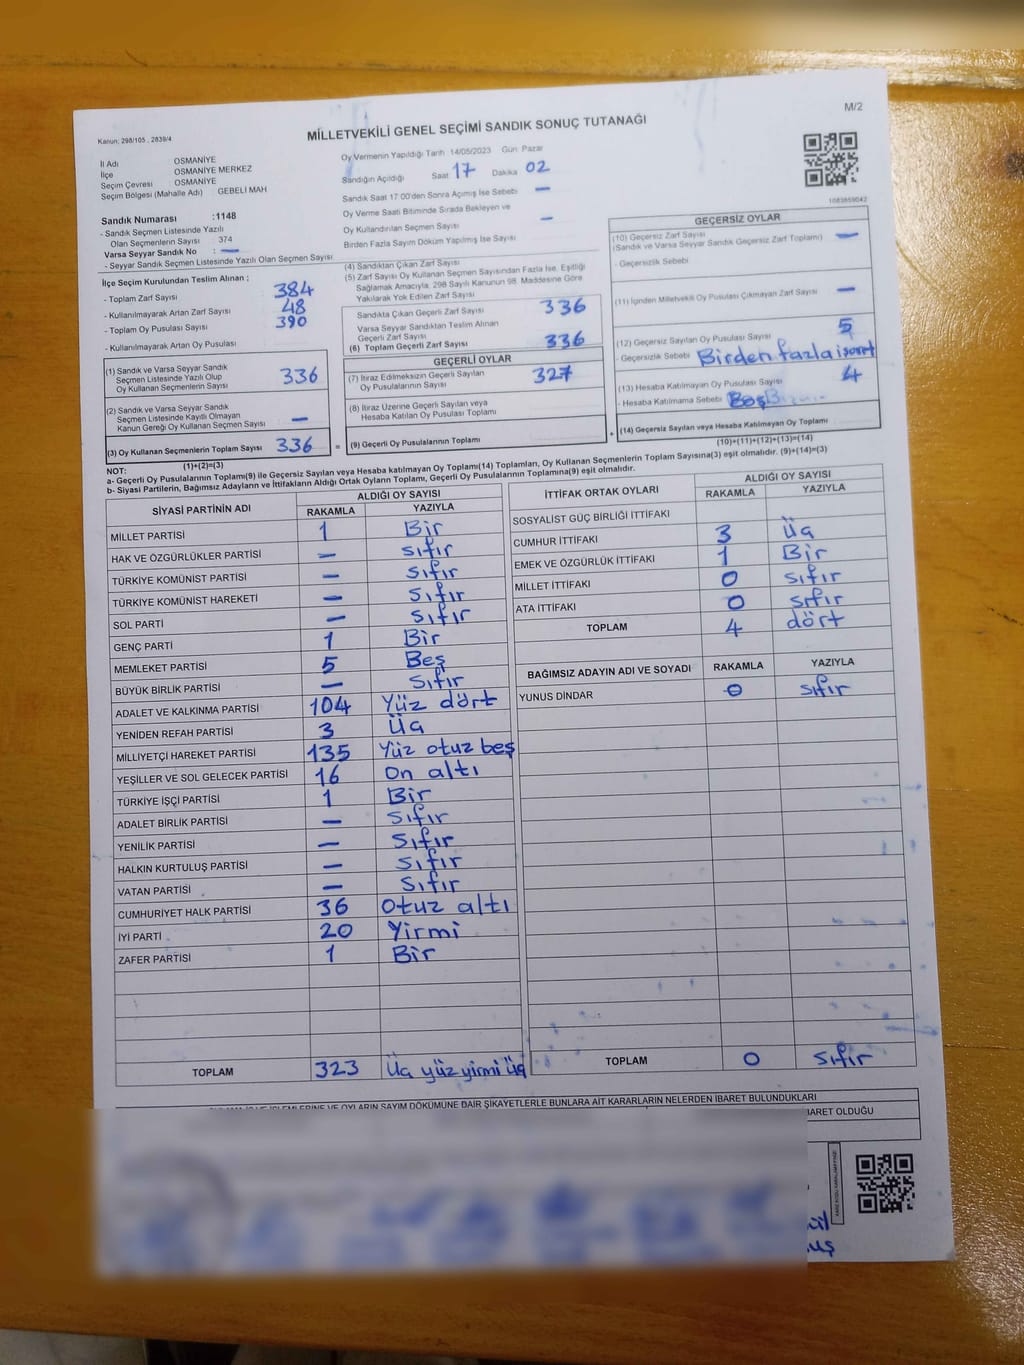 M/2
Kanun: 298/105 , 2839/4
MİLLETVEKİLİ GENEL SEÇİMİ SANDIK SONUÇ TUTANAĞI
İl Adı OSMANİYE
İlçe OSMANİYE MERKEZ
Seçim Çevresi OSMANİYE
Seçim Bölgesi (Mahalle Adı) GEBELİ MAH
Sandık Numarası :1148
- Sandık Seçmen Listesinde Yazılı
Olan Seçmenlerin Sayısı 374
Varsa Seyyar Sandık No : —
- Seyyar Sandık Seçmen Listesinde Yazılı Olan Seçmen Sayısı
Oy Vermenin Yapıldığı Tarih 14/05/2023 Gün Pazar
Sandığın Açıldığı Saat 17 Dakika 02
Sandık Saat 17 00'den Sonra Açımış İse Sebebi —
Oy Verme Saati Bitiminde Sırada Bekleyen ve
Oy Kullandırılan Seçmen Sayısı —
Birden Fazla Sayım Döküm Yapılmış İse Sayısı
1083859042
İlçe Seçim Kurulundan Teslim Alınan ;
- Toplam Zarf Sayısı 384
- Kullanılmayarak Artan Zarf Sayısı 48
- Toplam Oy Pusulası Sayısı 390
- Kullanılmayarak Artan Oy Pusulası
(1) Sandık ve Varsa Seyyar Sandık
Seçmen Listesinde Yazılı Olup
Oy Kullanan Seçmenlerin Sayısı 336
(2) Sandık ve Varsa Seyyar Sandık
Seçmen Listesinde Kayıtlı Olmayan
Kanun Gereği Oy Kullanan Seçmen Sayısı —
(3) Oy Kullanan Seçmenlerin Toplam Sayısı 336
(1)+(2)=(3)
(4) Sandıktan Çıkan Zarf Sayısı
(5) Zarf Sayısı Oy Kullanan Seçmen Sayısından Fazla İse, Eşitliği
Sağlamak Amacıyla, 298 Sayılı Kanunun 98. Maddesine Göre
Yakılarak Yok Edilen Zarf Sayısı
Sandıkta Çıkan Geçerli Zarf Sayısı 336
Varsa Seyyar Sandıktan Teslim Alınan
Geçerli Zarf Sayısı
(6) Toplam Geçerli Zarf Sayısı 336
GEÇERLİ OYLAR
(7) İtiraz Edilmeksizin Geçerli Sayılan
Oy Pusulalarının Sayısı 327
(8) İtiraz Üzerine Geçerli Sayılan veya
Hesaba Katılan Oy Pusulası Toplamı
= (9) Geçerli Oy Pusulalarının Toplamı +
GEÇERSİZ OYLAR
(10) Geçersiz Zarf Sayısı —
(Sandık ve Varsa Seyyar Sandık Geçersiz Zarf Toplamı)
- Geçersizlik Sebebi
(11) İçinden Milletvekili Oy Pusulası Çıkmayan Zarf Sayısı —
(12) Geçersiz Sayılan Oy Pusulası Sayısı 5
- Geçersizlik Sebebi Birden fazla işaret
(13) Hesaba Katılmayan Oy Pusulası Sayısı 4
- Hesaba Katılmama Sebebi Boş
(14) Geçersiz Sayılan veya Hesaba Katılmayan Oy Toplamı
(10)+(11)+(12)+(13)=(14)
NOT:
a- Geçerli Oy Pusulalarının Toplam(9) ile Geçersiz Sayılan veya Hesaba katılmayan Oy Toplamı(14) Toplamları, Oy Kullanan Seçmenlerin Toplam Sayısına(3) eşit olmalıdır. (9)+(14)=(3)
b- Siyasi Partilerin, Bağımsız Adayların ve İttifakların Aldığı Ortak Oyların Toplamı, Geçerli Oy Pusulalarının Toplamına(9) eşit olmalıdır.
SİYASİ PARTİNİN ADI ALDIĞI OY SAYISI
RAKAMLA YAZIYLA
MİLLET PARTİSİ 1 Bir
HAK VE ÖZGÜRLÜKLER PARTİSİ — sıfır
TÜRKİYE KOMÜNİST PARTİSİ — sıfır
TÜRKİYE KOMÜNİST HAREKETİ — sıfır
SOL PARTİ — sıfır
GENÇ PARTİ 1 Bir
MEMLEKET PARTİSİ 5 Beş
BÜYÜK BİRLİK PARTİSİ — sıfır
ADALET VE KALKINMA PARTİSİ 104 Yüz dört
YENİDEN REFAH PARTİSİ 3 Üç
MİLLİYETÇİ HAREKET PARTİSİ 135 Yüz otuz beş
YEŞİLLER VE SOL GELECEK PARTİSİ 16 On altı
TÜRKİYE İŞÇİ PARTİSİ 1 Bir
ADALET BİRLİK PARTİSİ — sıfır
YENİLİK PARTİSİ — sıfır
HALKIN KURTULUŞ PARTİSİ — sıfır
VATAN PARTİSİ — sıfır
CUMHURİYET HALK PARTİSİ 36 Otuz altı
İYİ PARTİ 20 Yirmi
ZAFER PARTİSİ 1 Bir
TOPLAM 323 Üç yüz yirmi üç
İTTİFAK ORTAK OYLARI ALDIĞI OY SAYISI
RAKAMLA YAZIYLA
SOSYALİST GÜÇ BİRLİĞİ İTTİFAKI
CUMHUR İTTİFAKI 3 Üç
EMEK VE ÖZGÜRLÜK İTTİFAKI 1 Bir
MİLLET İTTİFAKI 0 sıfır
ATA İTTİFAKI 0 sıfır
TOPLAM 4 dört
BAĞIMSIZ ADAYIN ADI VE SOYADI RAKAMLA YAZIYLA
YUNUS DİNDAR 0 sıfır
TOPLAM 0 sıfır
OYLARIN SAYIM DÖKÜMÜNE DAİR ŞİKAYETLERLE BUNLARA AİT KARARLARIN NELERDEN İBARET BULUNDUKLARI
İBARET OLDUĞU